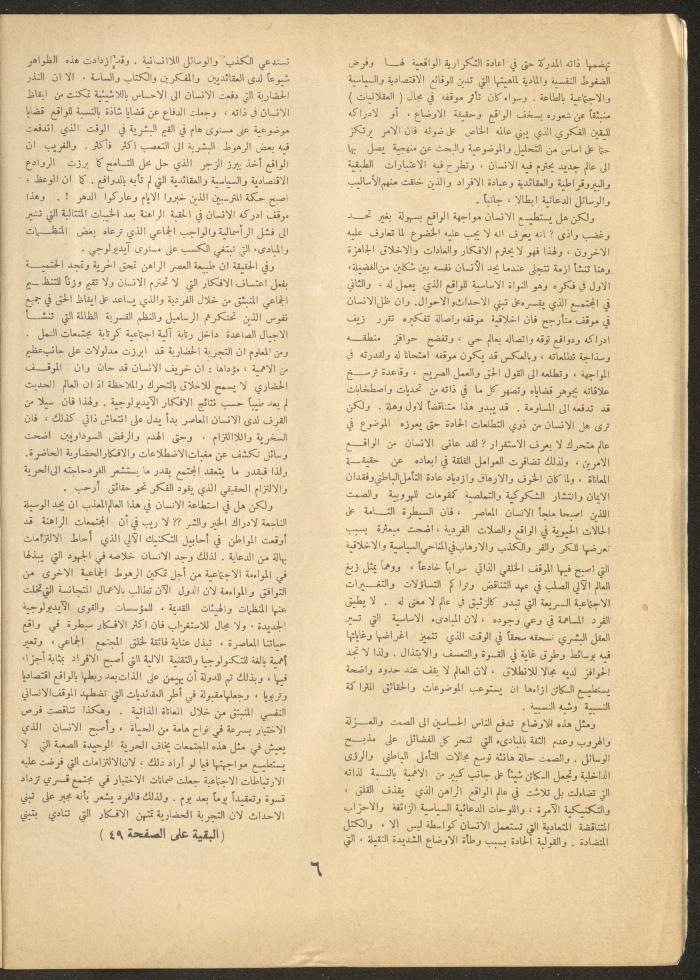 تهضمها ذاته المدركة حتى في اعادة التكرارية الواقعية لها وفرض
الضغوط النفسية والمادية لماهيتها التي تدين للوقائع الاقتصادية والسياسية
والاجتماعية بالطاعة . وسواء كان تأثر موقفه في مجال ( العقلانيات )
منبثقاً عن شعوره بسخف الواقع وحقيقة الاوضاع ، أو لادراكه
لليقين الفكري الذي يبني عالمه الخاص على ضوئه فان الامر يرتكز
حتما على اساس من التحليل والموضوعية والبحث عن منهجية يصل بها
الى عالم جديد يحترم فيه الانسان ، وتطرح فيه الاعتبارات الطبقية
والبيروقراطية والعقائدية وعبادة الافراد والذين خلقت منهم الأساليب
والوسائل الدعائية ابطالا ، جانباً .
ولكن هل يستطيع الانسان مواجهة الواقع بسهولة بغير تحد
وغضب واذى ? انه يعرف انه لا يجب عليه الخضوع لما تعارف عليه
الآخرون ، ولهذا فهو لا يحترم الافكار والعادات والاخلاق الجاهزة
وهنا تنشأ ازمة تتجلى عندما يجد الأنسان نفسه بين شكلين من الفضيلة،
الاول في فكره وهو النواة الاساسية للواقع الذي يعمل له ، والثاني
في المجتمع الذي يقسره على تبني الاحداث والاحوال. وان ظل الانسان
في موقف متأرجح فان اخلاقية موقفه واصالة تفكيره تقرر زيف
ادراكه ودوافع توقه واتصاله بعالم حي ، وتفضح حوافز منطقه
وسذاجة تطلعاته ، وبالعكس قد يكون موقفه امتحانا له ولقدرته في
المواجهة ، وتطلعه الى القول الحق والعمل الصريح ، وقاعدة ترسخ
علاقاته بجوهر قضاياه وتصهر كل ما في ذاته من تحديات واصطخابات
قد تدفعه الى المساومة . قد يبدو هذا متناقضاً لاول وهلة . ولكن
ترى هل الانسان من ذوي التطلعات الحادة حتى يعوزه الموضوع في
عالم متحرك لا يعرف الاستقرار ? لقد عانى الانسان من الواقع
الامرين ، ولذلك تضافرت العوامل القلقة في ابعاده عن حقيقة
المعاناة ، ولما كان الخوف والارهاف وازدياد عادة التأمل الباطني وفقدان
الايمان وانتشار الشكوكية والتملصية كمقومات للهروبية والصمت
اللذين اصبحا ملجأ الانسان المعاصر ، فان السيطرة التامة على
الحالات الحيوية في الواقع والصلات الفردية ، اضحت مبعثرة بسبب
تعرضها للمكر والقر والكذب والارهاب في المناحي السياسية والاخلاقية
التي اصبح فيها الموقف الخلقي الذاتي سراباً خادعاً ، ووهماً يمثل زيغ
العالم الآلي الصلب في عهد التناقض وتراكم التساؤلات والتغيرات
الاجتماعية السريعة التي تبدو كالزئبق في عالم لا معنى له . لا يطيق
الفرد المساهمة في وعي وجوده ، لان المبادىء الاساسية التي تسير
العقل البشري تسحقه سحقاً في الوقت الذي تتميز اغراضها وغاياتها
فيه بوسائط وطرق غاية في القسوة والتعسف والابتذال . ولذا لا تجد
الحوافز لديه مجالا للانطلاق ، لان العالم لا يقف عند حدود واضحة
يستطيع الكائن ازاءها ان يستوعب الموضوعات والحقائق المتراكة
النسبية وشبه النسبية .
ومثل هذه الاوضاع تدفع الناس الحساسين الى الصمت والعزلة
والهروب وعدم الثقة بالمبادىء التي تنحر كل الفضائل على مذبح
الوسائل . والصمت حالة هائلة توسع مجالات التأمل الباطني والرؤى
الداخلية وتجعل الكائن شيئاً على جانب كبير من الاهمية بالنسبة لذاته
التي تضاءلت بل تلاشت في عالم الواقع الراهن الذي يقذف القلق ،
والتكتيكية الآمرة ، واللوحات الدعائية السياسية الزائفة والاحزاب
المتناقضة المتعادية التي تستعمل الانسان كواسطة ليس الا ، والكتل
المتضادة . والقولبة الحادة بسبب وطأة الاوضاع الشديدة الثقيلة ، التي
تستدعي الكذب والوسائل اللاانسانية . وقد ازدادت هذه الظواهر
شيوعاً لدى العقائديين والمفكرين والكتاب والساسة ، الا ان النذر
الحضارية التي دفعت الانسان الى الاحساس باللاشيئية تمكنت من ايقاظ
الانسان في ذاته ، وجعلت الدفاع عن قضايا شاذة بالنسبة للواقع قضايا
موضوعية على مستوى هام في القيم البشرية في الوقت الذي اندفعت
فيه بعض الرهوط البشرية الى التعصب اكثر فأكثر . والغريب ان
الواقع أخذ يبرز الزجر الذي حل محل التسامح كما برزت الروادع
الاقتصادية والسياسية والعقائدية التي لم تأبه بالدوافع . كما ان الوعظ ،
اصبح حكمة المتمرسين الذين خبروا الايام وعاركوا الدهر ! . وهذا
موقف ادركه الانسان في الحقبة الراهنة بعد الخيبات المتتالية التي تشير
الى فشل الرأسمالية والواجب الجماعي الذي ترعاه بعض المنظمات
والمبادىء التي تبتغي الكسب على مستوى آيديولوجي .
وفي الحقيقة ان طبيعة العصر الراهن تمحق الحرية وتمجد الحتمية
بفعل اعتساف الافكار التي لا تحترم الانسان ولا تقيم وزناً للتنظيم
الجماعي المنبثق من خلال الفردية والذي يساعد على ايقاظ الحق في جميع
نفوس الذين تحتكرهم الرساميل والنظم القسرية الظالمة التي تنشأ
الاجيال الصاعدة داخل رتابة آلية اجتماعية كرتابة مجتمعات النمل .
ومن المعلوم ان التجربة الحضارية قد ابرزت مدلولات على جانب عظيم
من الاهمية ، مؤداها ، ان خريف الانسان قد حان وان الموقف
الحضاري لا يسمح للاخلاق بالتحرك والملاحظ اذ ان العالم الحديث
لم يعد طيباً حسب نتائج الافكار الآيديولوجية . ولهذا فان سيلا من
القرف لدى الانسان المعاصر بدأ يدل على انتعاش ذاتي كذلك ، فان
السخرية واللاالتزام ، وحتى الهدم والرفض السوداويين اضحت
وسائل تكشف عن مغبات الاضطلاعات والافكار الحضارية الحاضرة .
ولذا فبقدر ما يتعقد المجتمع بقدر ما يستشعر الفرد حاجته الى الحرية
والالتزام الحقيقي الذي يقود الفكر نحو حقائق أرحب .
ولكن هل في استطاعة الانسان في هذا العالم المذهب ان يجد الوسيلة
الناجعة لادراك الخير والشر ?? لا ريب في أن المجتمعات الراهنة قد
أوقعت المواطن في أحابيل التكنيك الآلي الذي أحاط الالتزامات
بهالة من الدعاية . لذلك وجد الانسان خلاصه في الجهود التي يبذلها
في المواءمة الاجتماعية من أجل تمكين الرهوط الجماعية الاخرى من
التوافق والمواءمة لان الدول الآن تطالب بالاعمال المتجانسة التي تخلت
عنها المنظمات والهيئات القديمة ، للمؤسسات والقوى الآيديولوجية
الجديدة . ولا مجال للاستغراب فان اكثر الافكار سيطرة في واقع
حياتنا المعاصرة ، تبذل عناية فائقة لخلق المجتمع الجماعي ، وتعير
أهمية بالغة للتكنولوجيا والتقنية الآلية التي أصبح الافراد بمثابة أجزاء
فيها ، وبذلك تم للدولة أن يهيمن على الذات بعد ربطها بالواقع اقتصاديا
وتربويا ، وجعلها مقبولة في أطر العقائديات التي تضطهد الموقف الانساني
النفسي المنبثق من خلال المعاناة الذاتية . وهكذا تناقصت فرص
الاختيار بسرعة في نواح هامة من الحياة ، وأصبح الانسان الذي
يعيش في مثل هذه المجتمعات يخاف الحرية الوحيدة الصعبة التي لا
يستطيع مواجهتها فيما لو أراد ذلك ، لان الالتزامات التي فرضت عليه
الارتباطات الاجتماعية جعلت ضمانات الاختيار في مجتمع قسري تزداد
قسوة وتعقيداً يوماً بعد يوم . ولذلك فالفرد يشعر بأنه مجبر على تبني
الاحداث لان التجربة الحضارية تمتهن الافكار التي تنادي بتبني
( البقية على الصفحة ٤٩ )
٦